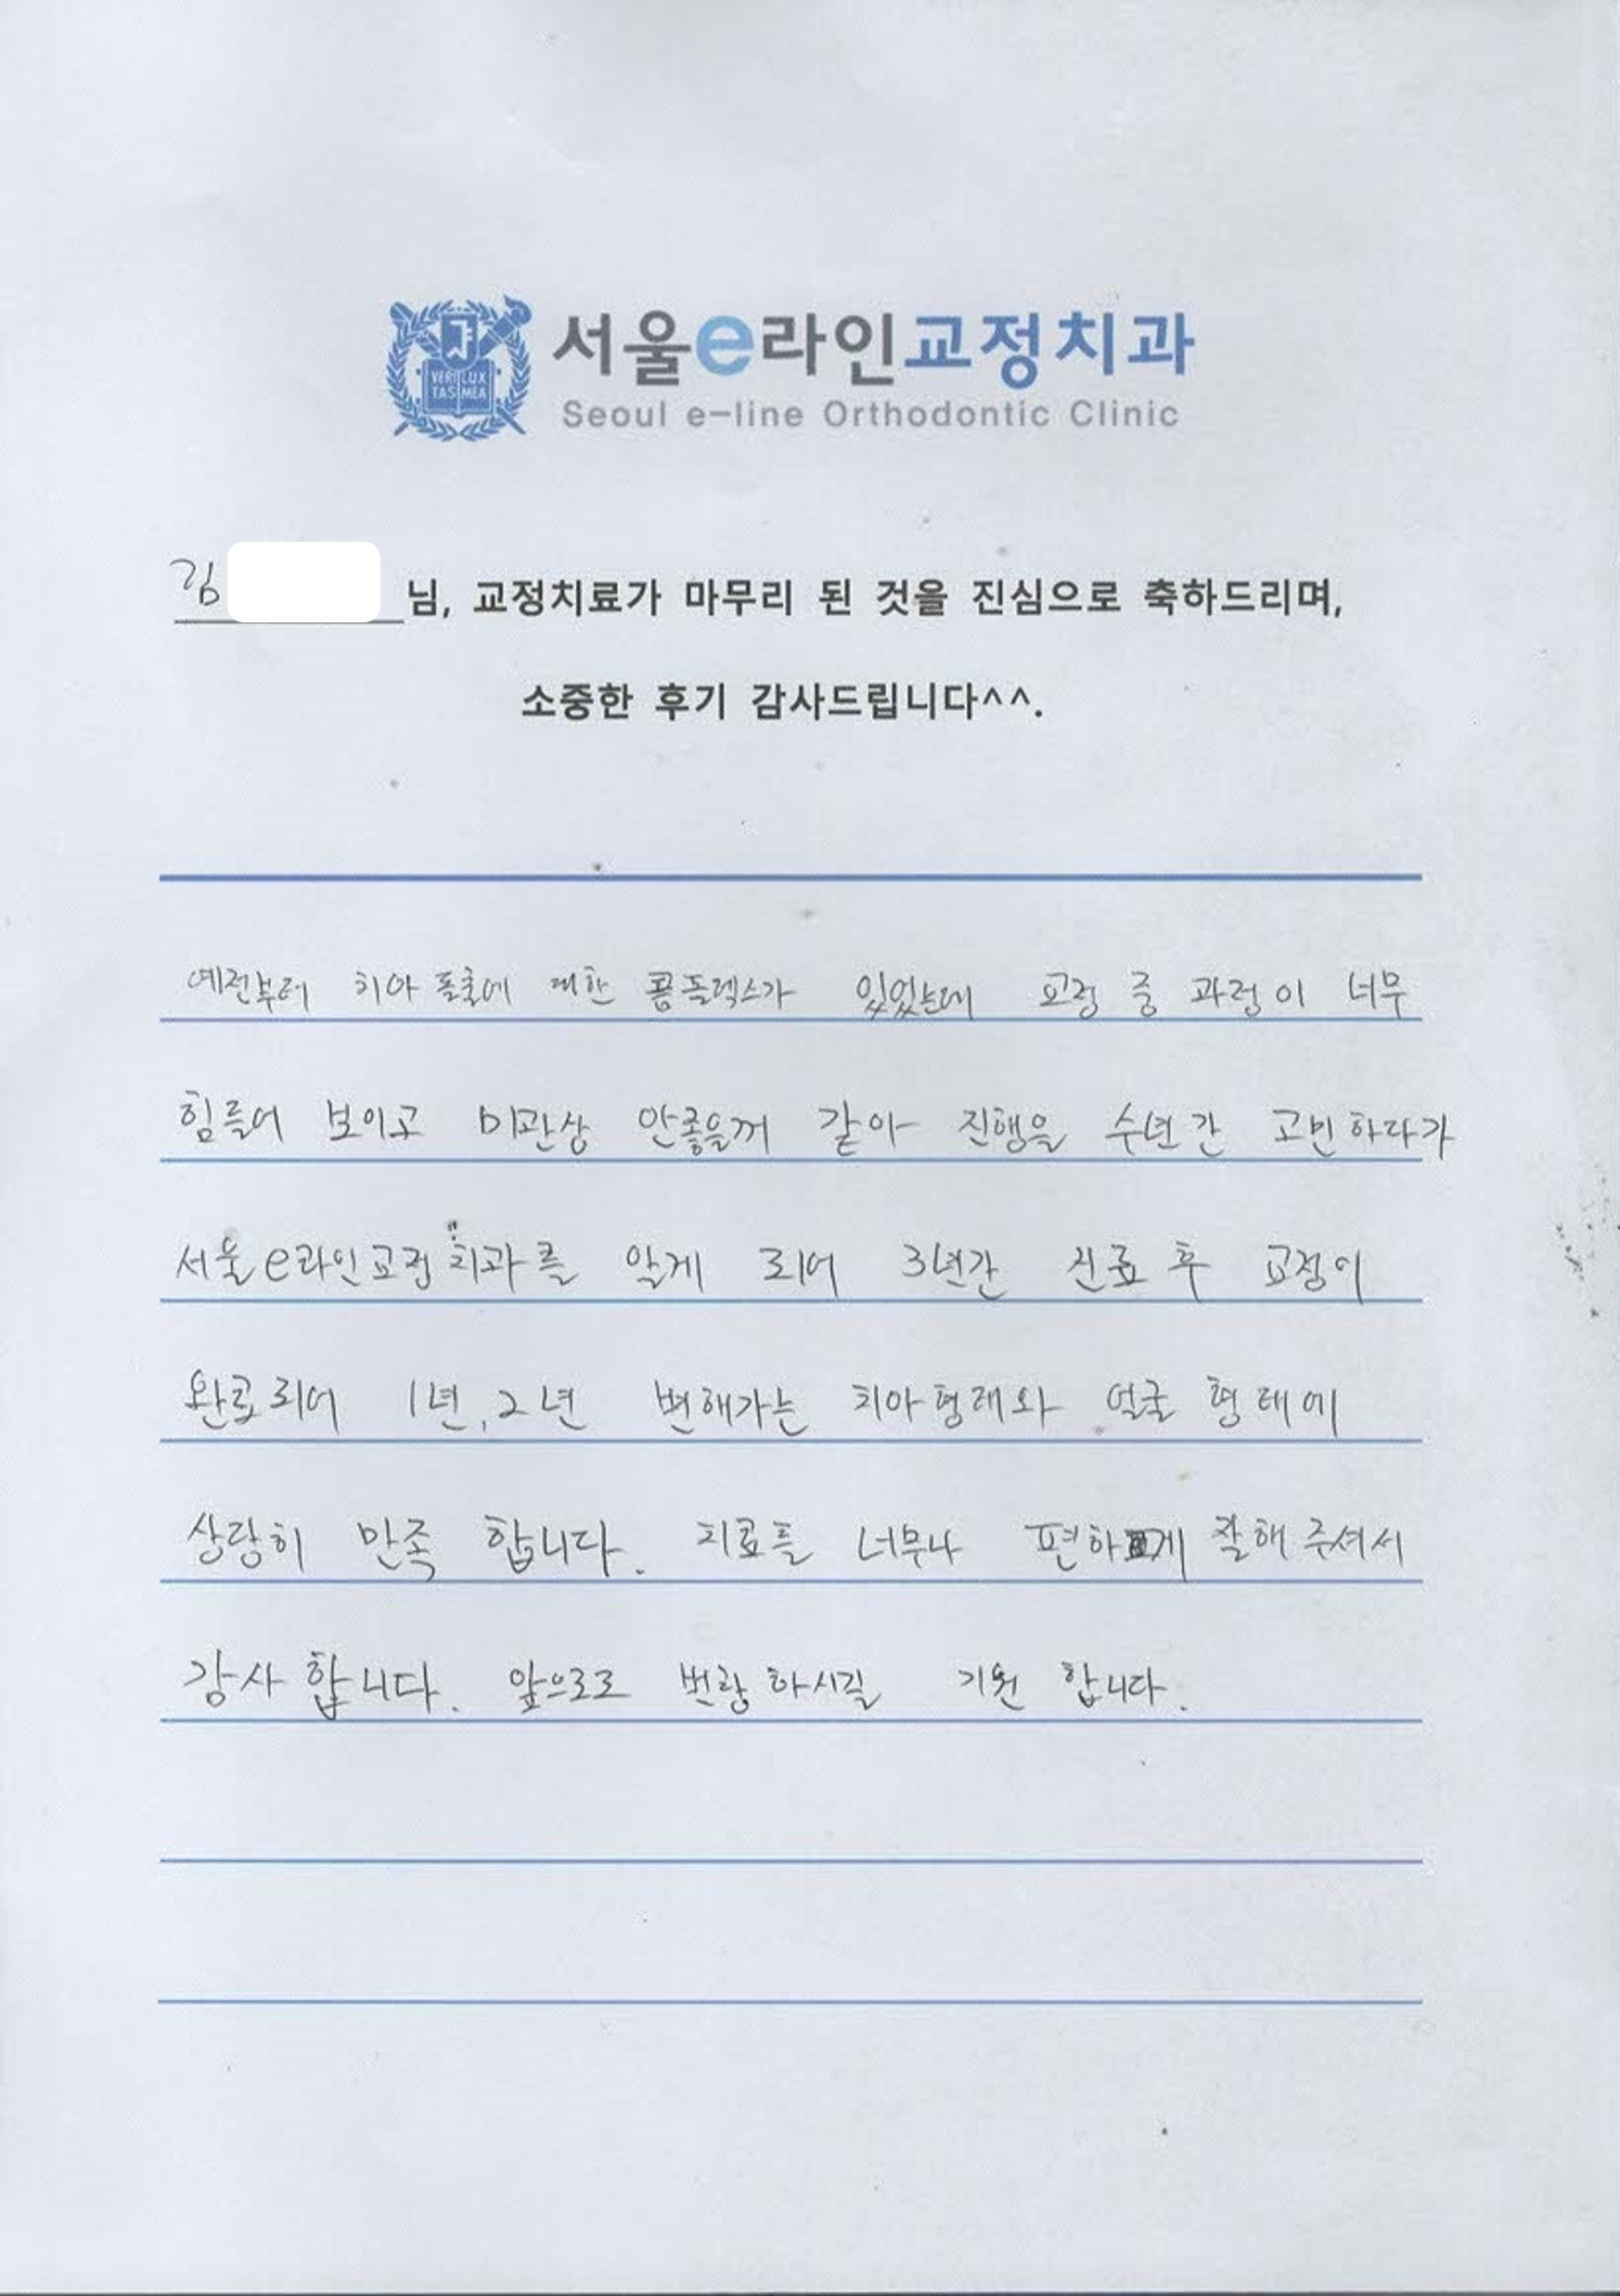 서울e라인교정치과
VERI LUX
TAS MEA
Seoul e-line Orthodontic Clinic
김 님, 교정치료가 마무리 된 것을 진심으로 축하드리며,
소중한 후기 감사드립니다^^.
예전부터 치아 돌출에 대한 콤플렉스가 있었는데 교정 중 과정이 너무
힘들어 보이고 미관상 안좋을꺼 같아 진행을 수년간 고민하다가
서울e라인교정치과를 알게 되어 3년간 진료 후 교정이
완료되어 1년, 2년 변해가는 치아형태와 얼굴 형태에
상당히 만족 합니다. 치료를 너무나 편하게 잘해 주셔서
감사 합니다. 앞으로도 번창 하시길 기원 합니다.